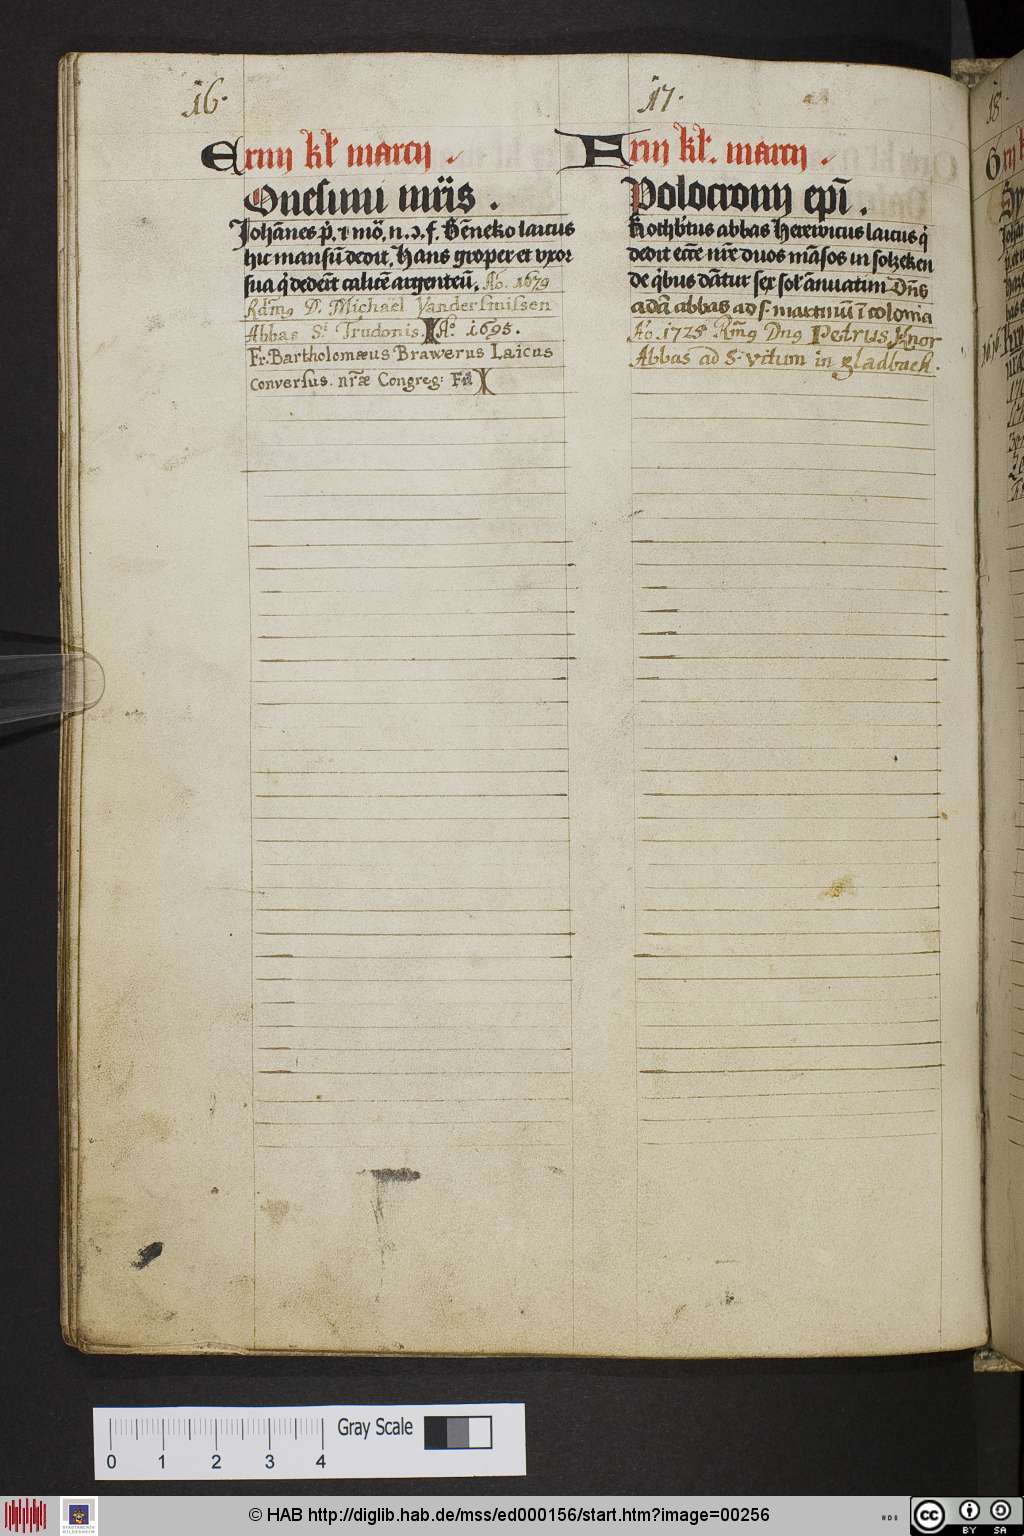 16.
E xiiij kł marcij
Onesimi mr̄is .
Johānes p̄. et mō. n. ɔ. f. Hēneko laicus
hic mansū dedit. Hans groper et vxor
sua q̄ dedēt calicē argenteū. Aō. 1679
Rdm9 D. Michäel Vandersmissen
Abbas Sti Trudonis. Aō 1695.
Fr. Bartholomæus Brawerus Laicus
conversus. nræ Congreg:
17.
F xiij kł. marcij
Polocronij epī.
abbas Herewicus laicus q̄
dedit ecc̄e nr̄e duos māsos in solzeken
de q̄bus dātur sex sol' ānuatim Dn̄s
adā abbas ad s. martinū ī colonia
Aō. 1725 Rm9 Dn9 Petrus Knor
Abbas ad S. vitum in gladbach.
18
G
Gray Scale
0 1 2 3 4
© HAB http://diglib.hab.de/mss/ed000156/start.htm?image=00256
cc BY SA